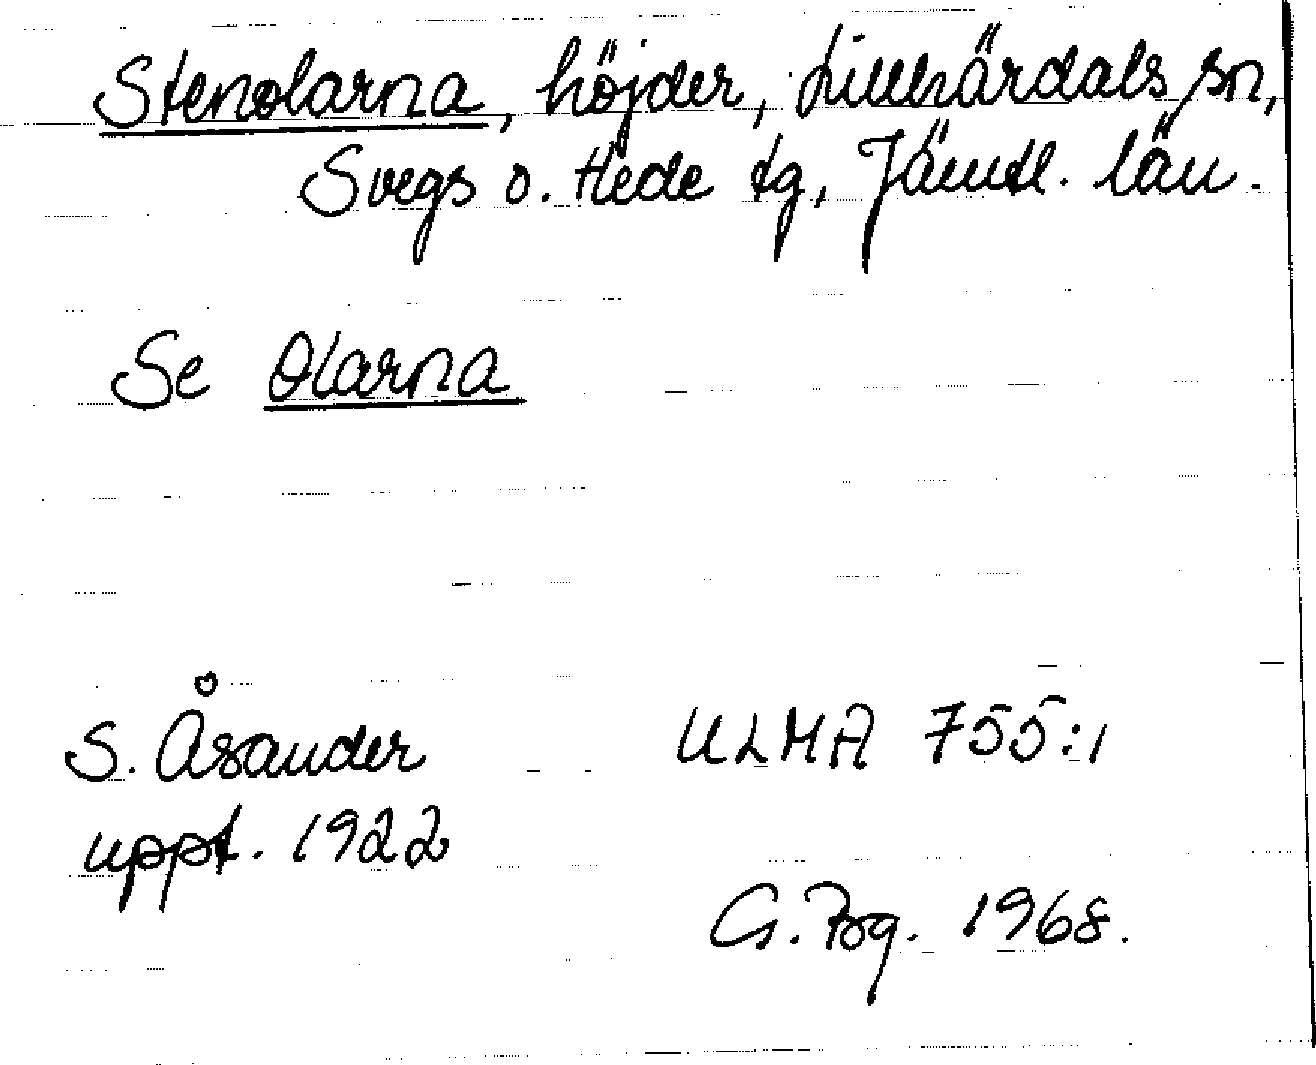 Stenolarna, höjder, Lillhärdals sn,
Svegs o. Hede tg, Jämtl. län.
Se Olarna
S. Åsander ULMA 755:1
uppt. 1922
G. Bg. 1968.